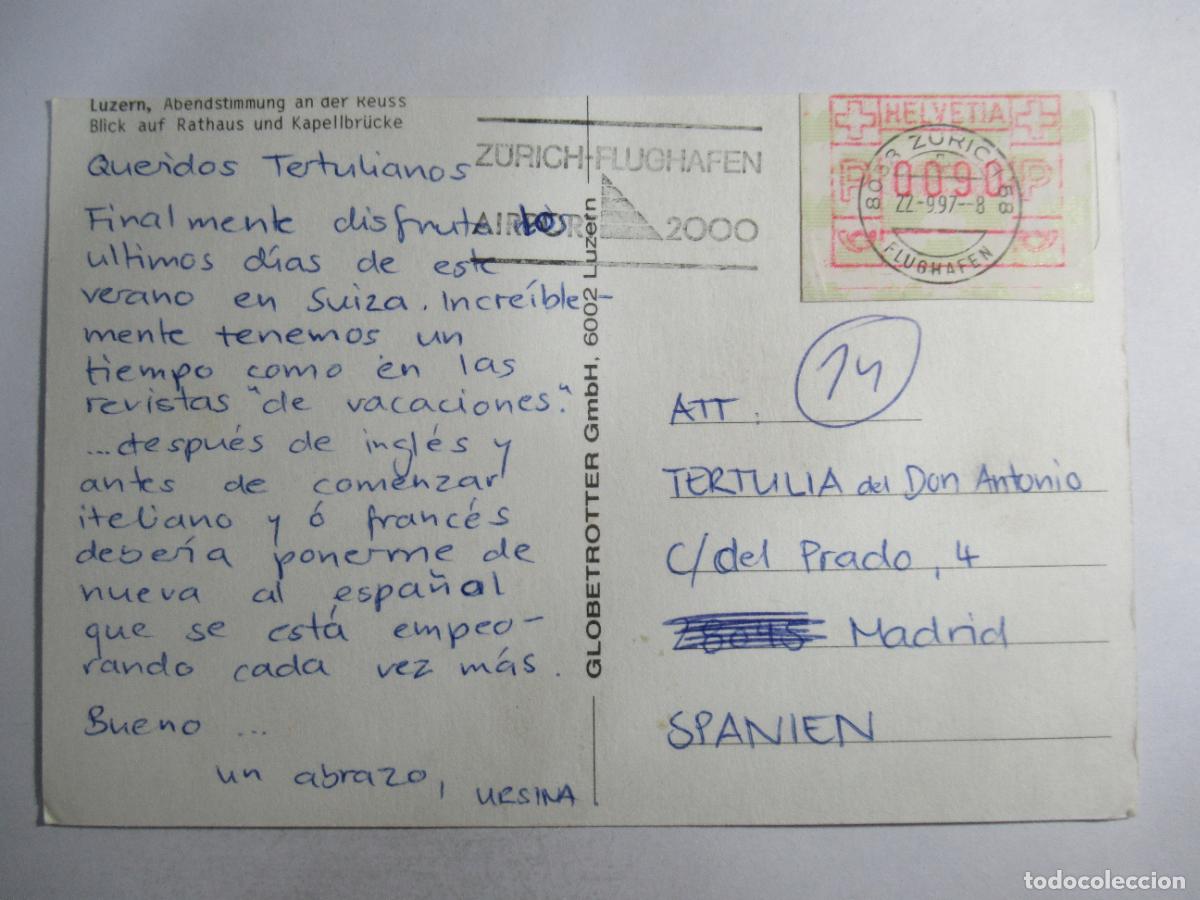 Luzern, Abendstimmung an der Reuss
Blick auf Rathaus und Kapellbrücke
Queridos Tertulianos
Finalmente disfruto los
ultimos días de este
verano en Suiza. Increíble-
mente tenemos un
tiempo como en las
revistas "de vacaciones."
...después de inglés y
antes de comenzar
iteliano y ó francés
debería ponerme de
nueva al español
que se está empeo-
rando cada vez más.
Bueno ...
un abrazo,
URSINA
GLOBETROTTER GmbH, 6002 Luzern
ZÜRICH-FLUGHAFEN
AIRPORT 2000
HELVETIA
P 0090 P
8058 ZÜRICH 58
22-9.97--8
FLUGHAFEN
14
ATT:
TERTULIA del Don Antonio
C/del Prado, 4
Madrid
SPANIEN
todocoleccion